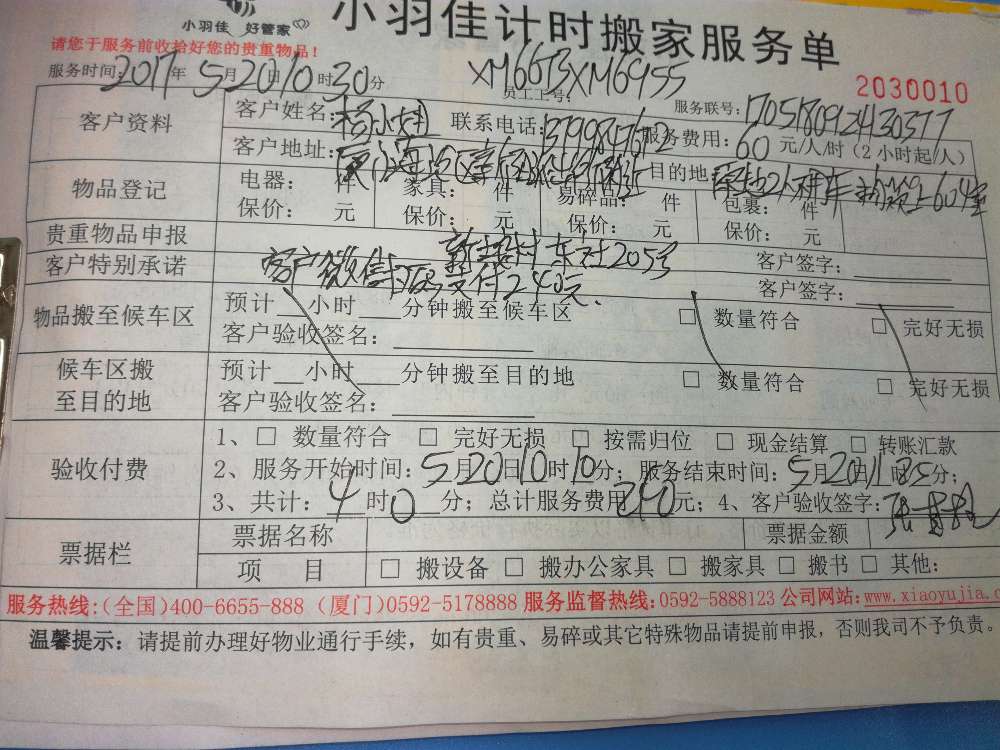 小羽佳 好管家
小羽佳计时搬家服务单
请您于服务前收拾好您的贵重物品！
2030010
服务时间：2017年5月20日10时30分 XM6613 XM6955
员工工号：
服务联号：170518092430377
客户资料 客户姓名： 联系电话： 服务费用：60元/人/时（2小时起/人）
客户地址： 目的地：
物品登记 电器： 件 家具： 件 易碎品： 件 包裹： 件
保价： 元 保价： 元 保价： 元 保价： 元
贵重物品申报 客户签字：
客户特别承诺 客户微信扫码支付240元. 客户签字：
物品搬至候车区 预计__小时___分钟搬至候车区 □ 数量符合 □ 完好无损
客户验收签名：
候车区搬至目的地 预计__小时___分钟搬至目的地 □ 数量符合 □ 完好无损
客户验收签名：
验收付费 1、□ 数量符合 □ 完好无损 □ 按需归位 □ 现金结算 □ 转账汇款
2、服务开始时间：5月20日10时10分；服务结束时间：5月20日
3、共计：4时0分；总计服务费用240元；4、客户验收签字：
票据栏 票据名称 票据金额
项 目 □ 搬设备 □ 搬办公家具 □ 搬家具 □ 搬书 □ 其他：
服务热线：（全国）400-6655-888（厦门）0592-5178888 服务监督热线：0592-5888123 公司网站：www.xiaoyujia.c
温馨提示：请提前办理好物业通行手续，如有贵重、易碎或其它特殊物品请提前申报，否则我司不予负责。